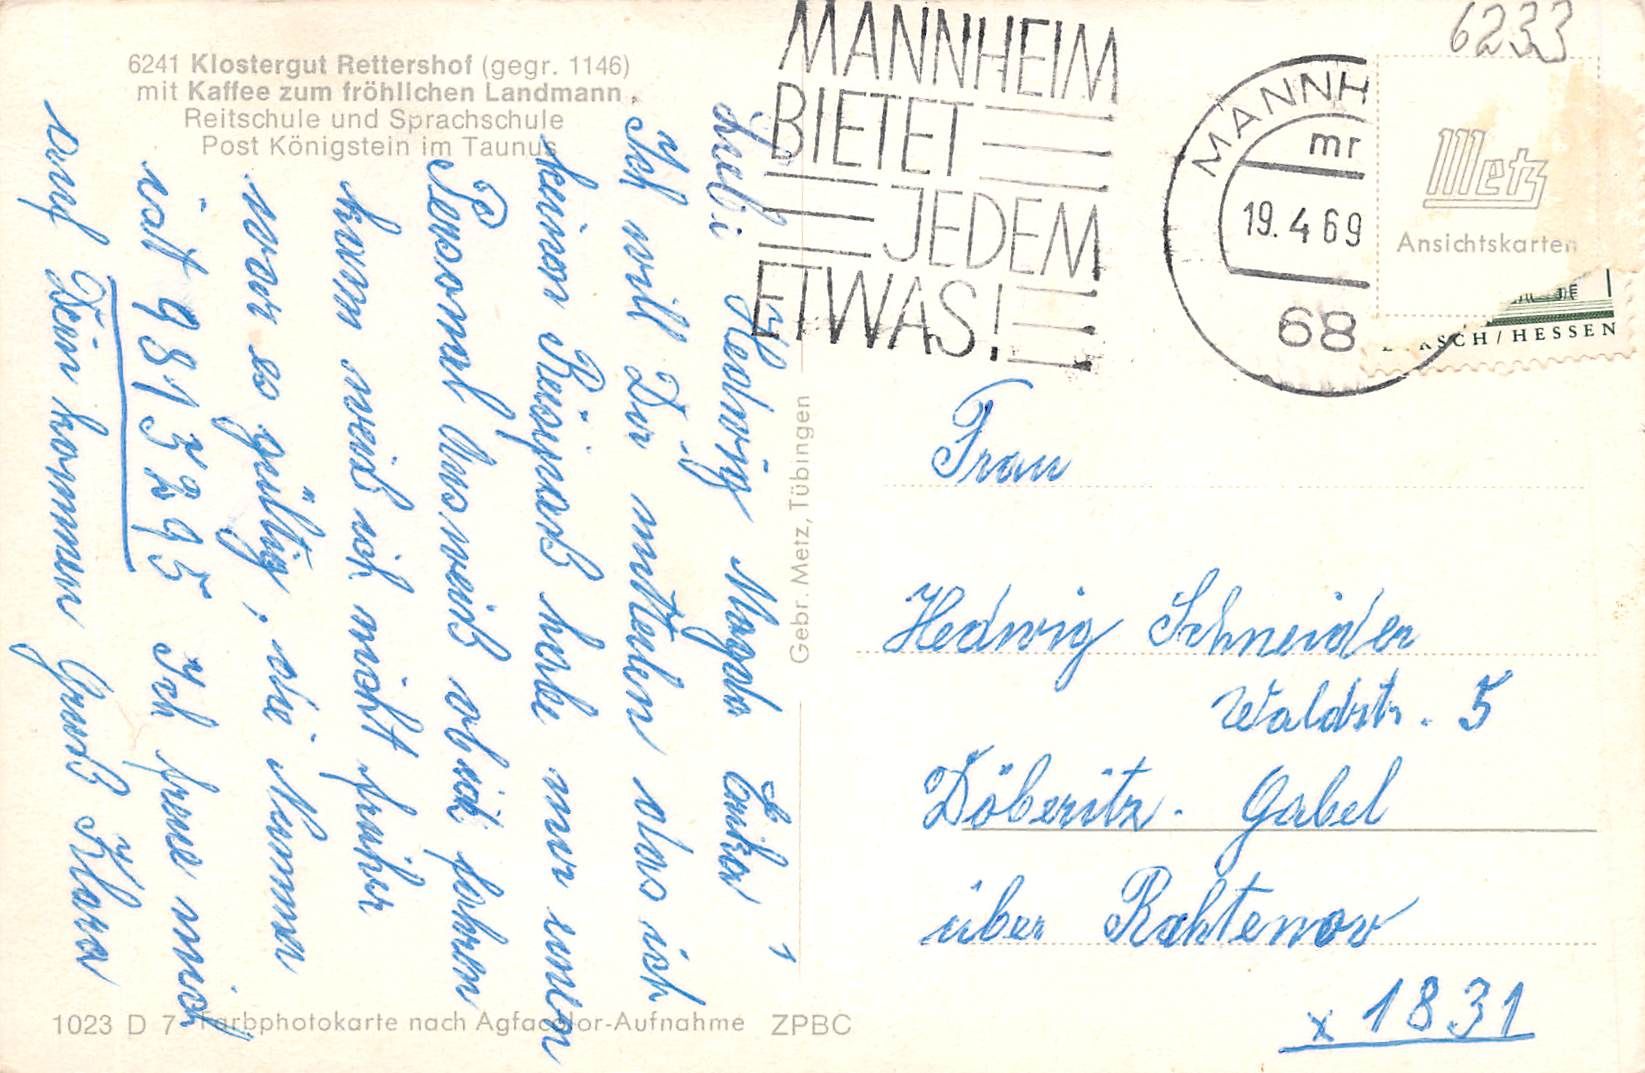 6241 Klostergut Rettershof (gegr. 1146)
mit Kaffee zum fröhlichen Landmann,
Reitschule und Sprachschule
Post Königstein im Taunus
Liebe Hedwig Magda Erika
Ich will Dir mitteilen das ich
keinen Reisepaß habe nur einen
Personal Ausweiß ob ich fahren
kann weiß ich nicht früher
war es gültig, die Nummer
ist 9813295 Ich freue mich
auf Dein kommen Gruß Klara
1023 D 7 Farbphotokarte nach Agfacolor-Aufnahme ZPBC
Gebr. Metz, Tübingen
MANNHEIM
BIETET
JEDEM
ETWAS!
MANNH
mr
19.4.69
68
6233
Metz
Ansichtskarten
RSCH/HESSEN
Frau
Hedwig Schneider
Waldstr. 5
Döberitz - Gabel
über Rahtenow
x 1831